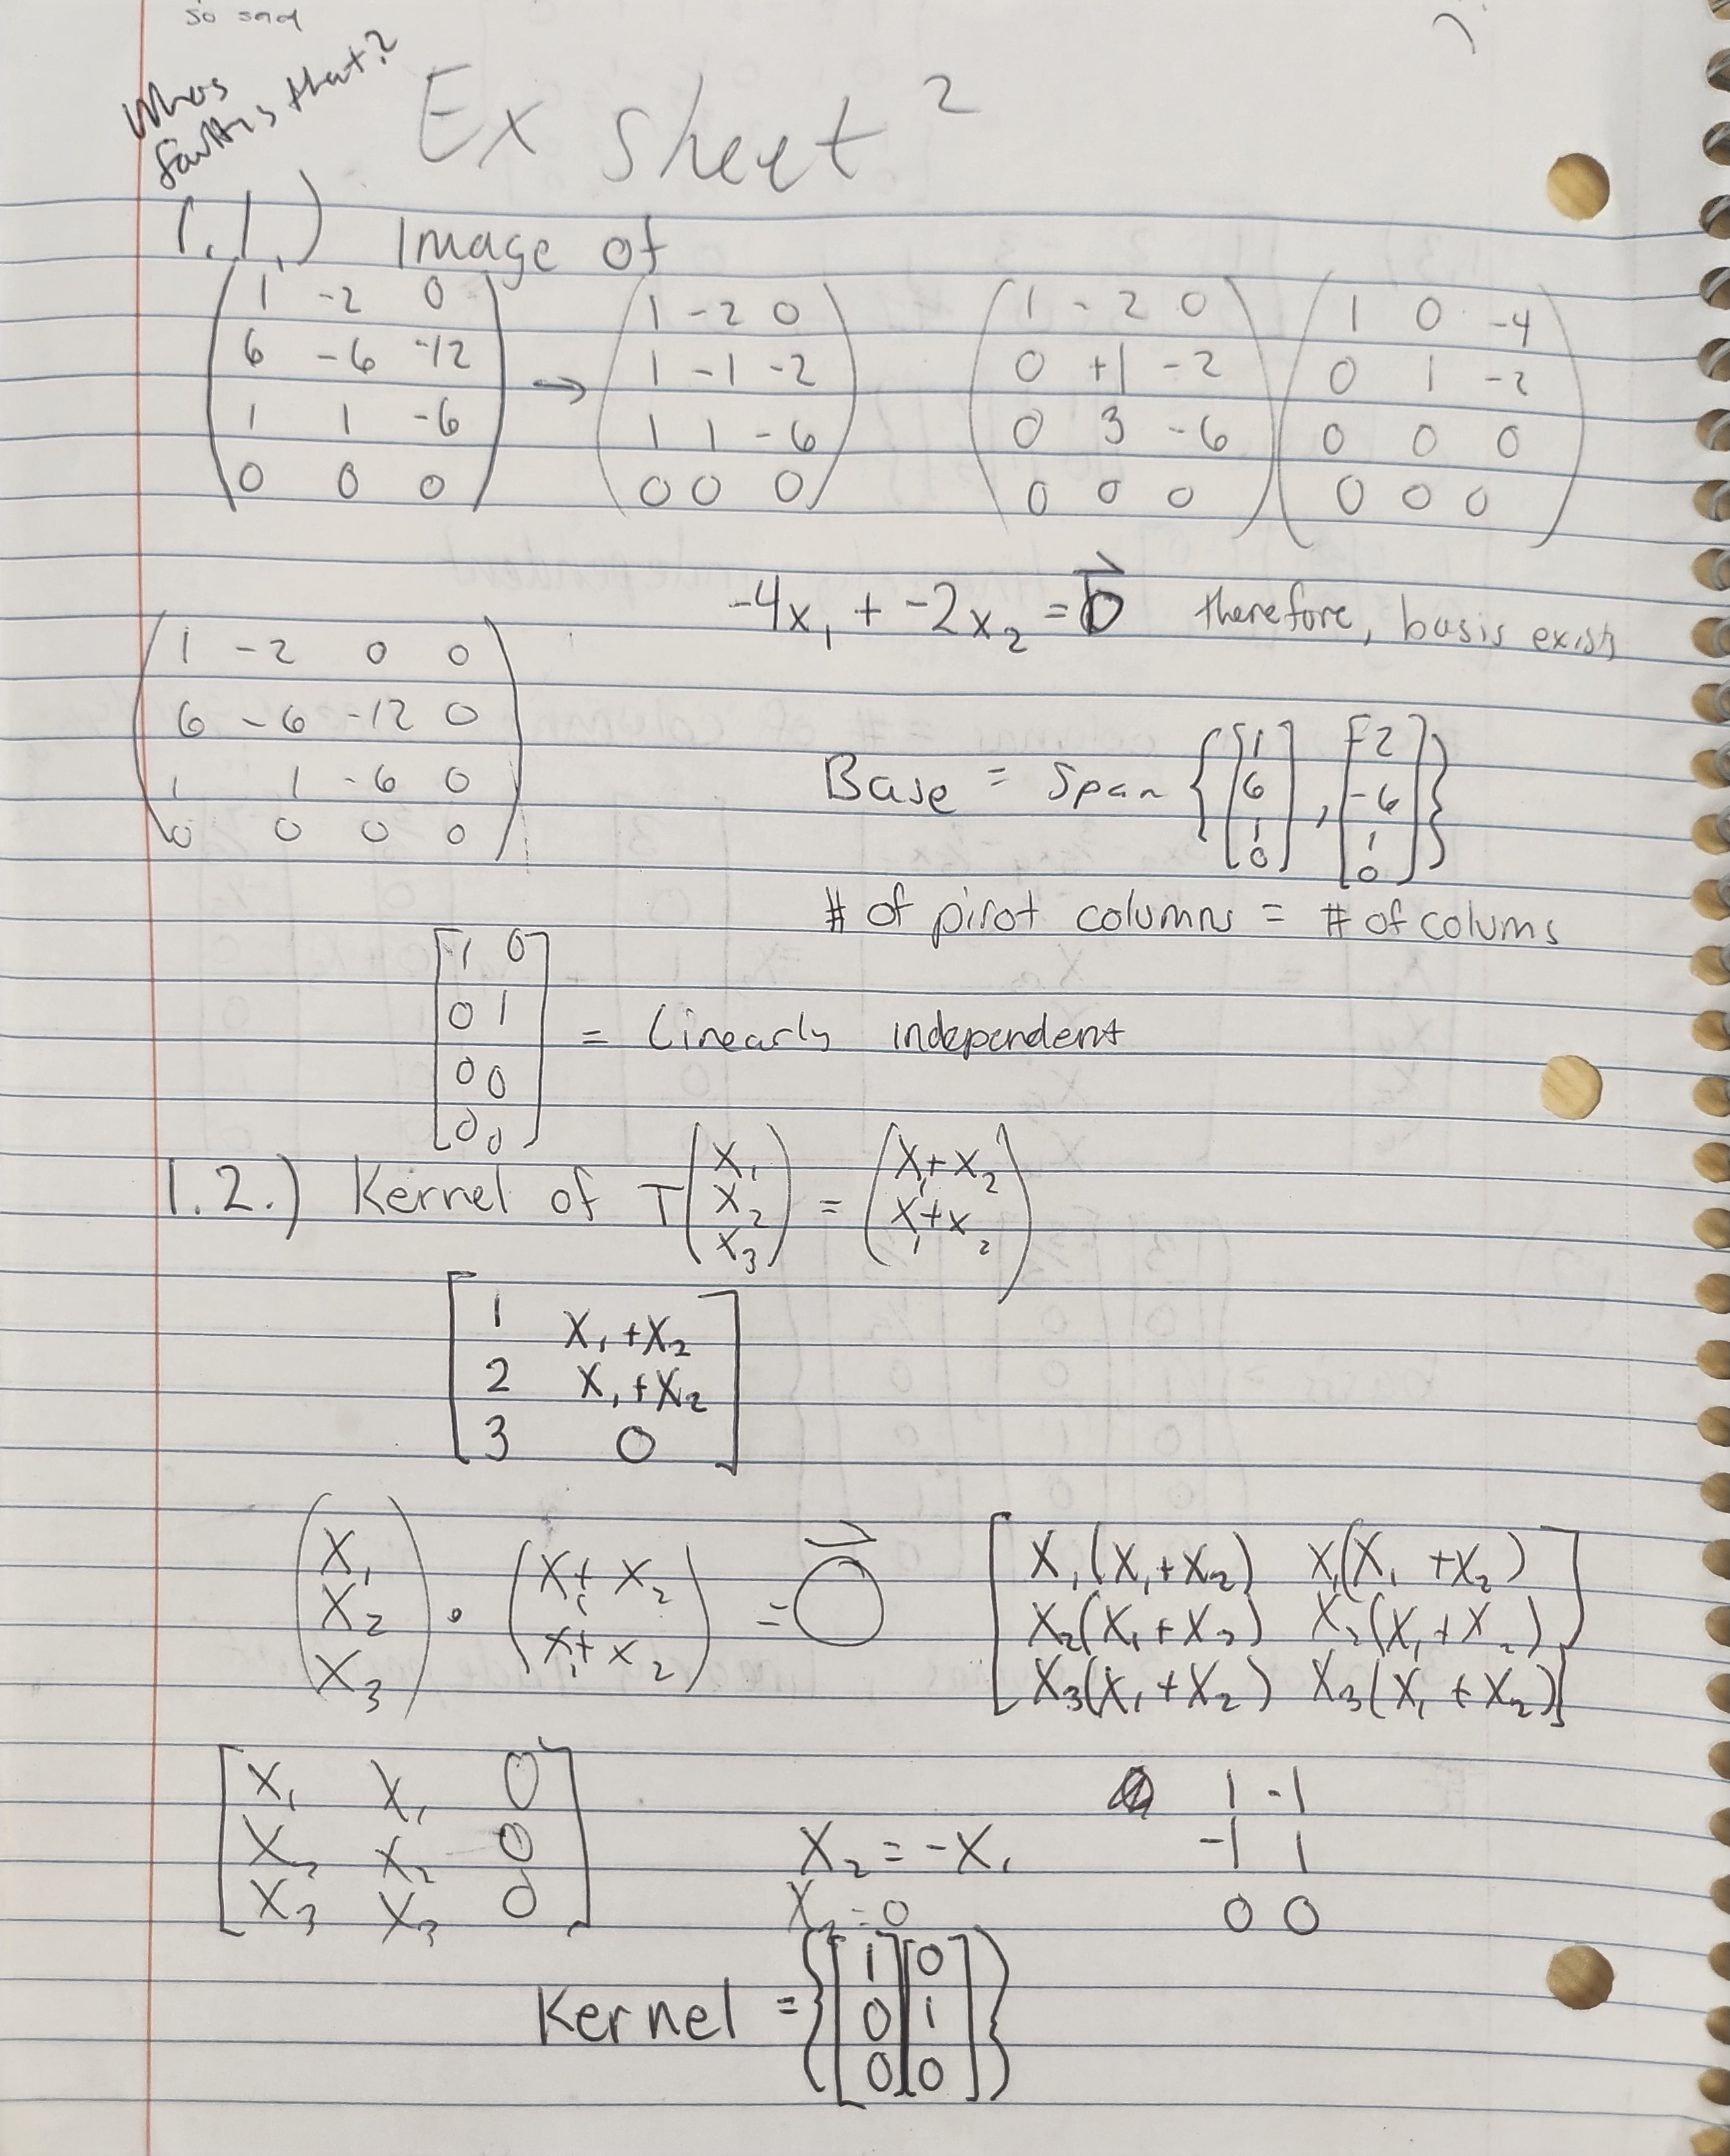 so sad
Whos
fault is that?
Ex sheet 2
1.1.) Image of
1 -2 0
6 -6 -12
1 1 -6
0 0 0
→
1 -2 0
1 -1 -2
1 1 -6
0 0 0
1 -2 0
0 +1 -2
0 3 -6
0 0 0
1 0 -4
0 1 -2
0 0 0
0 0 0
-4x₁ + -2x₂ = b⃗ therefore, basis exists
1 -2 0 0
6 -6 -12 0
1 1 -6 0
0 0 0 0
Base = Span {[1 6 1 0], [-2 -6 1 0]}
# of pivot columns = # of colums
1 0
0 1
0 0
0 0
= Linearly independent
1.2.) Kernel of T(x₁ x₂ x₃) = (x₁+x₂ x₁+x₂)
1 x₁+x₂
2 x₁+x₂
3 0
(x₁ x₂ x₃) · (x₁+x₂ x₁+x₂) = 0⃗
x₁(x₁+x₂) x₁(x₁+x₂)
x₂(x₁+x₂) x₂(x₁+x₂)
x₃(x₁+x₂) x₃(x₁+x₂)
x₁ x₁ 0
x₂ x₂ 0
x₃ x₃ 0
x₂ = -x₁
x₃ = 0
1 -1
-1 1
0 0
Kernel = {[1 0 0][0 1 0]}